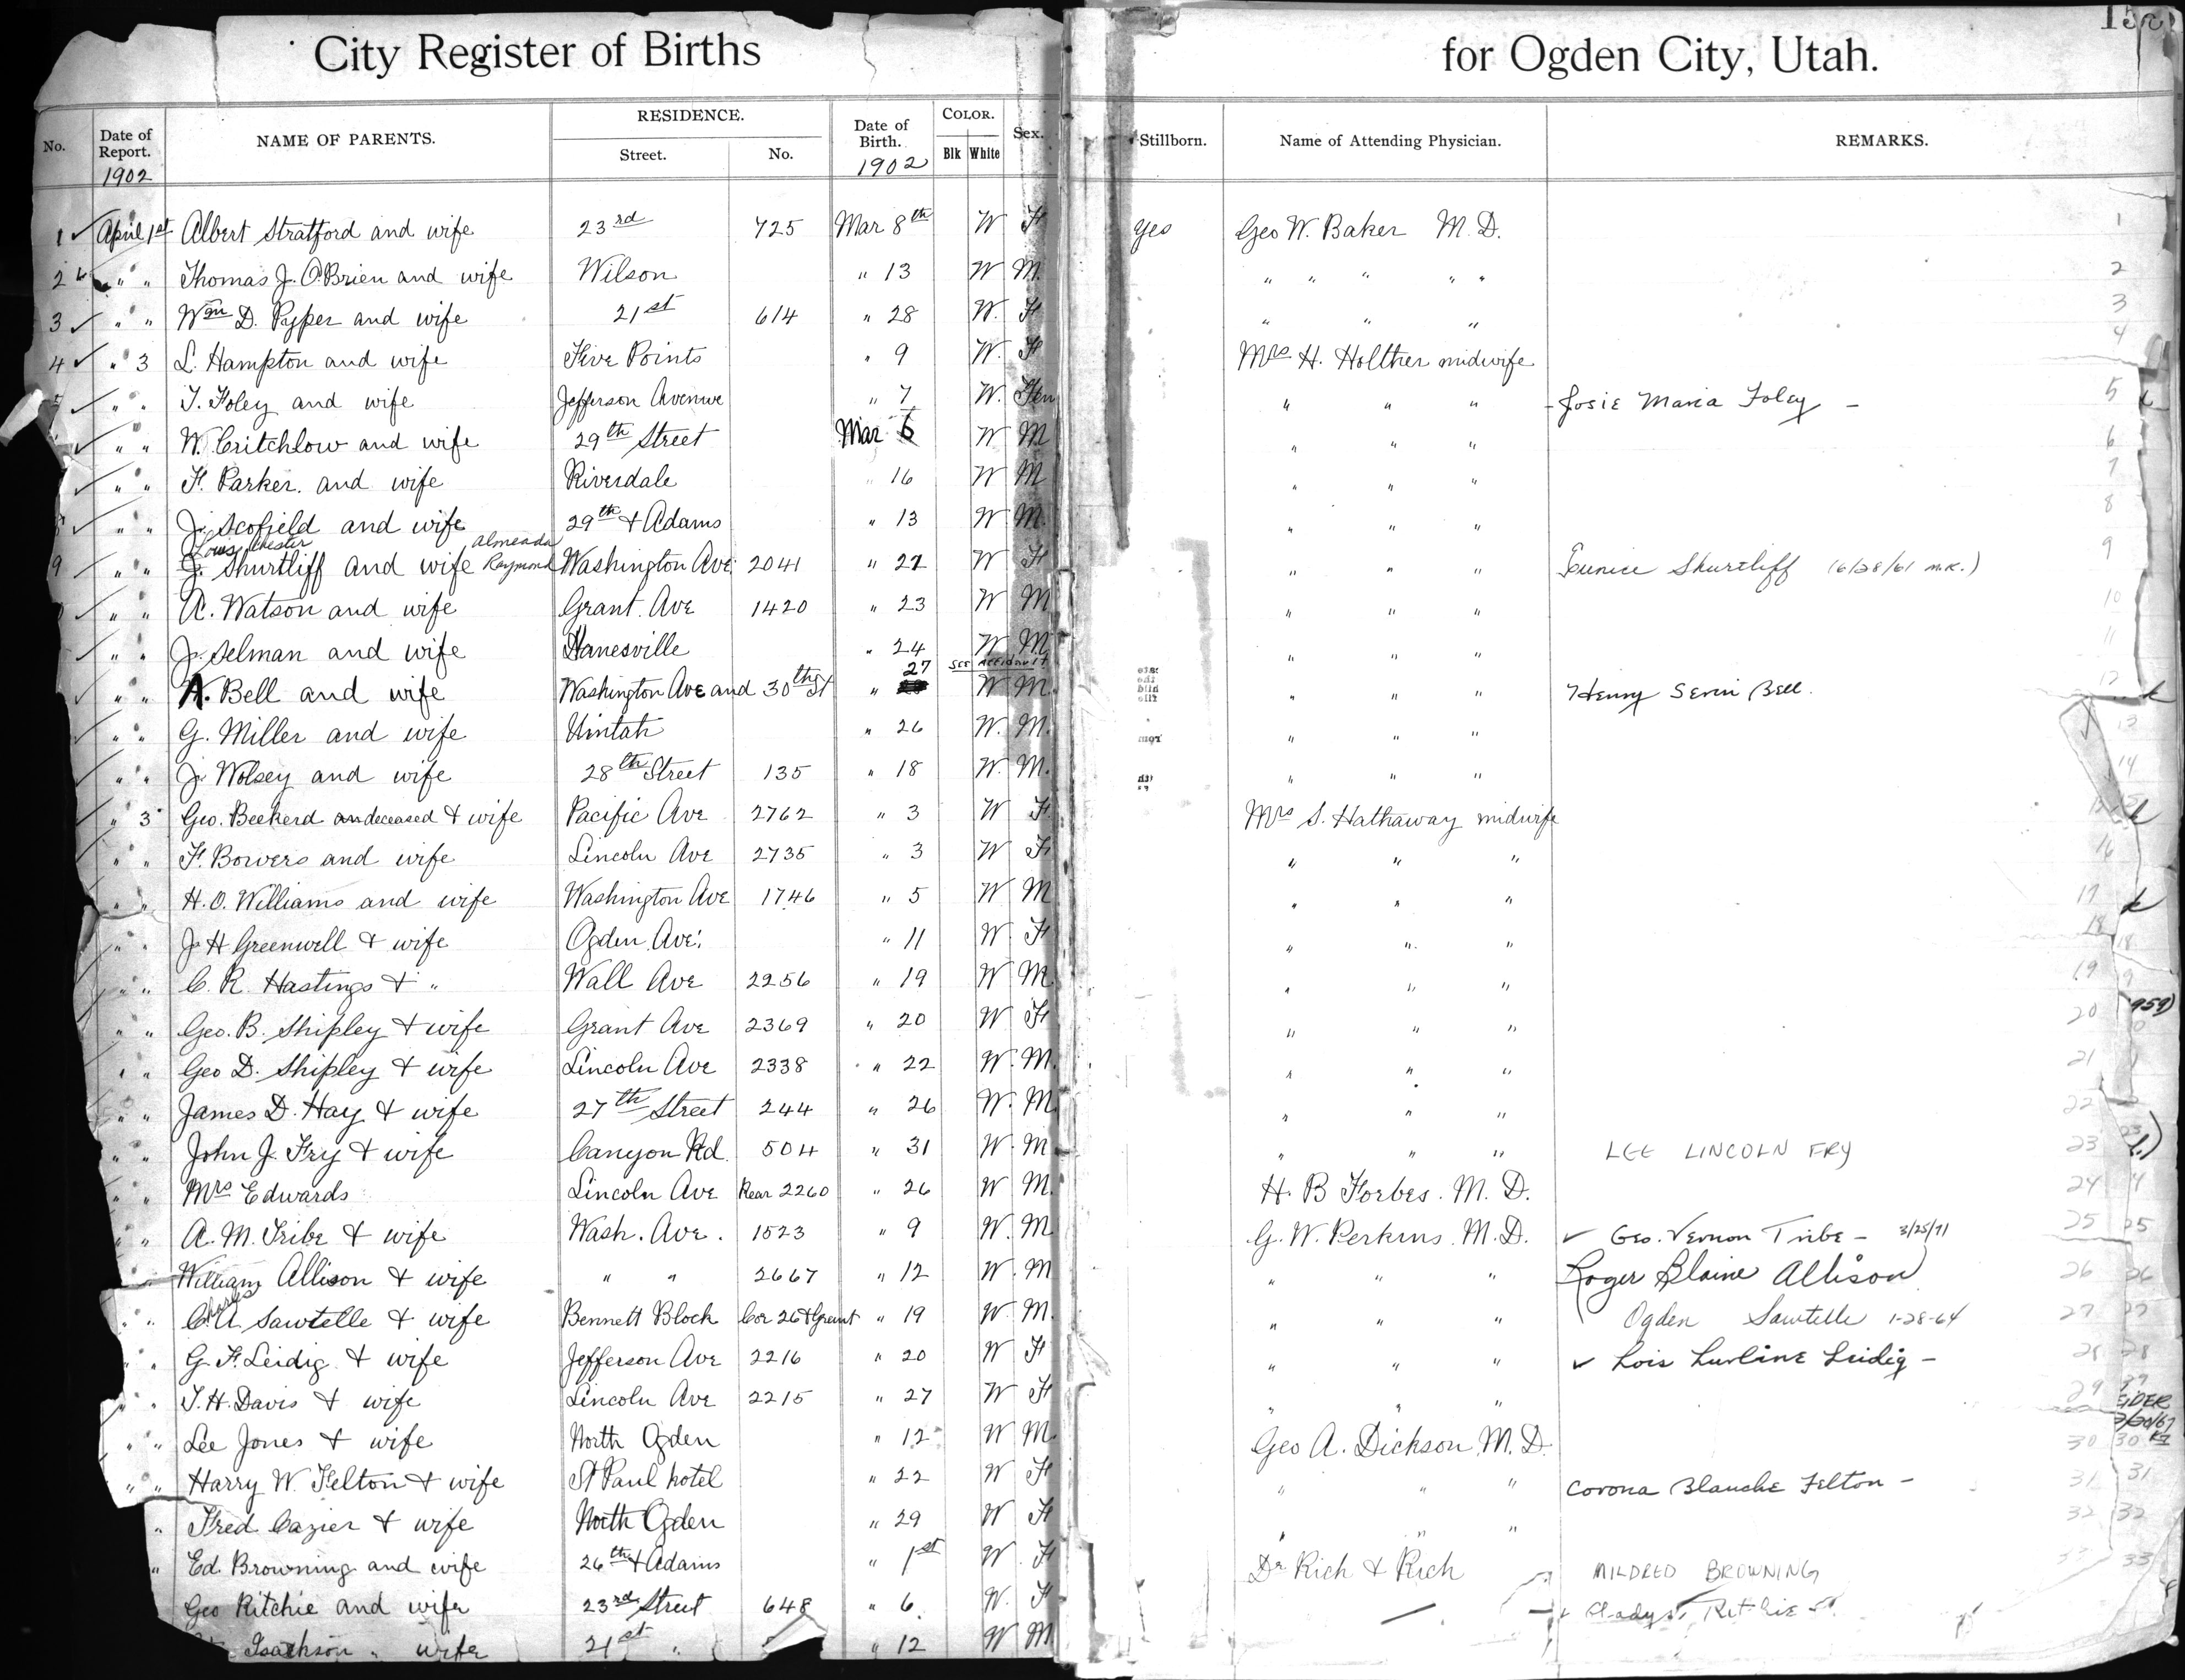 City Register of Births for Ogden City, Utah.
No. Date of Report. 1902 NAME OF PARENTS. RESIDENCE. Street. No. Date of Birth. 1902 COLOR. Blk White Sex. Stillborn. Name of Attending Physician. REMARKS.
1 April 1st Albert Stratford and wife 23rd 725 Mar 8th W F Yes Geo W. Baker M.D. 1
2 " " Thomas J. O'Brien and wife Wilson " 13 W M. " " " " " 2
3 " " Wm D. Pyper and wife 21st 614 " 28 W. F " " " 3
4 " 3 L. Hampton and wife Five Points " 9 W. F Mrs H. Holther midwife 4
" " T. Foley and wife Jefferson Avenue " 7 W. Fem " " " - Josie Maria Foley - 5
" " W. Critchlow and wife 29th Street Mar 6 W M " " " 6
" " F. Parker. and wife Riverdale " 16 W M " " " 7
" " J. Scofield and wife 29th & Adams " 13 W M. " " " 8
Louis Chester Almeada
9 " " J. Shurtliff and wife Raymond Washington Ave. 2041 " 21 W F " " " Eunice Shurtliff (6/28/61 m.k.) 9
" " A. Watson and wife Grant. Ave 1420 " 23 W M " " " 10
" " J. Selman and wife Hanesville " 24 W M " " " 11
27 SEE AFFIDAVIT
" " A. Bell and wife Washington Ave and 30th St " W M. " " " Henry Servin Bell. 12
" " G. Miller and wife Uintah " 26 W. M. " " " 13
" " J. Wolsey and wife 28th Street 135 " 18 W. M. " " " 14
" 3 Geo. Beekerd deceased & wife Pacific Ave 2762 " 3 W F Mrs S. Hathaway midwife
" " F. Bowers and wife Lincoln Ave 2735 " 3 W F " " " 16
" " H. O. Williams and wife Washington Ave 1746 " 5 W M " " " 17
" " J H Greenwell & wife Ogden Ave. " 11 W F " " " 18
" " C. R. Hastings & " Wall Ave 2256 " 19 W M " " " 19
" " Geo. B. Shipley & wife Grant Ave 2369 " 20 W F " " " 20
" " Geo D. Shipley & wife Lincoln Ave 2338 " 22 W. M. " " " 21
" " James D. Hay & wife 27th Street 244 " 26 W. M. " " " 22
" " John J. Fry & wife Canyon Rd. 504 " 31 W. M. " " " LEE LINCOLN FRY 23
" " Mrs Edwards Lincoln Ave Rear 2260 " 26 W M. H. B Forbes. M. D. 24
" " A. M. Tribe & wife Wash. Ave. 1523 " 9 W. M G. W. Perkins. M.D. ✓ Geo. Vernon Tribe - 3/25/71 25 25
William Allison & wife " " 2667 " 12 W. M " " " Roger Blaine Allison 26 26
Charles
" " C. A Sawtelle & wife Bennett Block Cor 26 & Grant " 19 W. M. " " " Ogden Sawtelle 1-28-64 27 27
" " G. F. Leidig. & wife Jefferson Ave 2216 " 20 W F " " " ✓ Lois Lurline Leidig - 28 28
" " T. H. Davis & wife Lincoln Ave 2215 " 27 W F " " " 29
" " Lee Jones & wife North Ogden " 12 W M. Geo A. Dickson M.D. 30 30
" " Harry W. Felton & wife St Paul hotel " 22 W F " " " Corona Blanche Felton - 31 31
" Fred Cazier & wife North Ogden " 29 W F " " " 32 32
" Ed. Browning and wife 26th & Adams " 1st W. F Dr Rich & Rich MILDRED BROWNING 33
Geo Ritchie and wife 23rd Street 648 " 6 W. F Gladys Ritchie
Isackson " wife 21st " " 12 W M